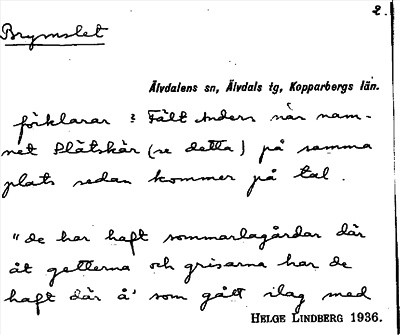 2.
Brymslet
Älvdalens sn, Älvdals tg, Kopparbergs län.
förklarar : Fält Anders när nam-
net Slåtskär (se detta) på samma
plats sedan kommer på tal.
"de har haft sommarlagårdar där
åt getterna och grisarna har de
haft där å' som gått ilag med
HELGE LINDBERG 1936.